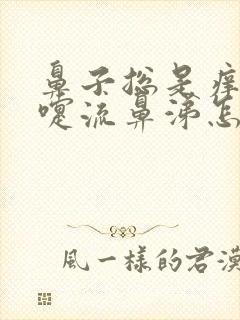 鼻子总是痒
嚏流鼻涕怎
風一樣的君漠